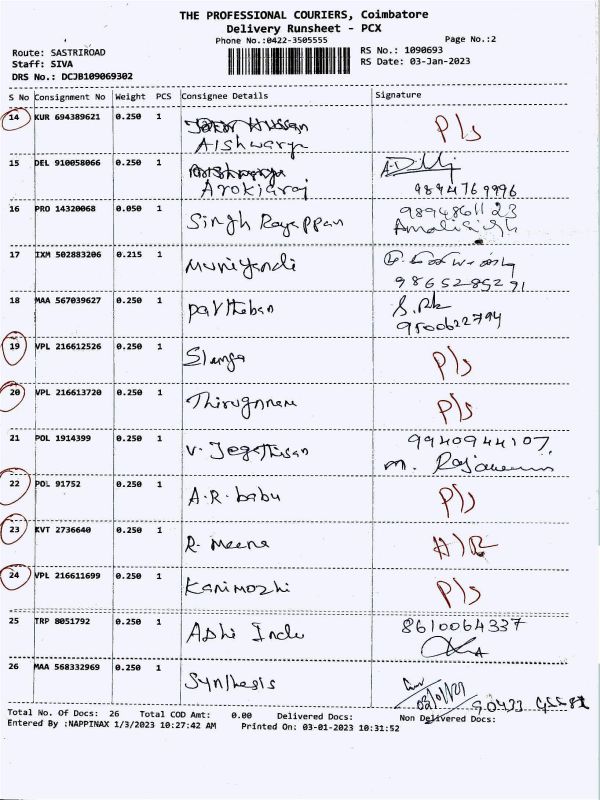 THE PROFESSIONAL COURIERS, Coimbatore
Delivery Runsheet - PCX
Phone No.:0422-3505555
Page No.:2
Route: SASTRIROAD
RS No.: 1090693
Staff: SIVA
RS Date: 03-Jan-2023
DRS No.: DCJB109069302
S No Consignment No Weight PCS Consignee Details Signature
14 KUR 694389621 0.250 1 P/s
Aishwarya
15 DEL 910058066 0.250 1
Arokiaraj 9894769996
16 PRO 14320068 0.050 1 9894861123
Singh Rayappan
17 IXM 502883206 0.215 1
Muniyandi 9865285291
18 MAA 567039627 0.250 1 S.
Partheban 9500622794
19 VPL 216612526 0.250 1
P/s
20 VPL 216613720 0.250 1
P/s
21 POL 1914399 0.250 1 9940944107
V. Jegathesan M.
22 POL 91752 0.250 1
A.R. babu P/s
23 KVT 2736640 0.250 1
R. Meena
24 VPL 216611699 0.250 1
Kanimozhi P/s
25 TRP 8051792 0.250 1 8610064337
Abhi Indu
26 MAA 568332969 0.250 1
Synthesis
Total No. Of Docs: 26 Total COD Amt: 0.00 Delivered Docs: Non Delivered Docs:
Entered By :NAPPINAX 1/3/2023 10:27:42 AM Printed On: 03-01-2023 10:31:52